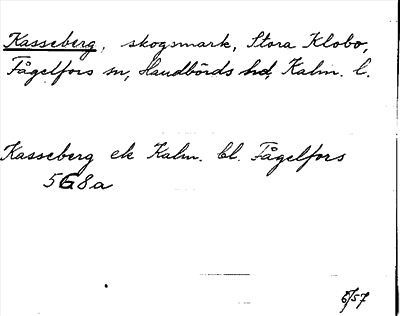 Kasseberg, skogsmark, Stora Klobo,
Fågelfors sn, Handbörds hd, Kalm. l.
Kasseberg ek Kalm. bl. Fågelfors
5G8a
6/57